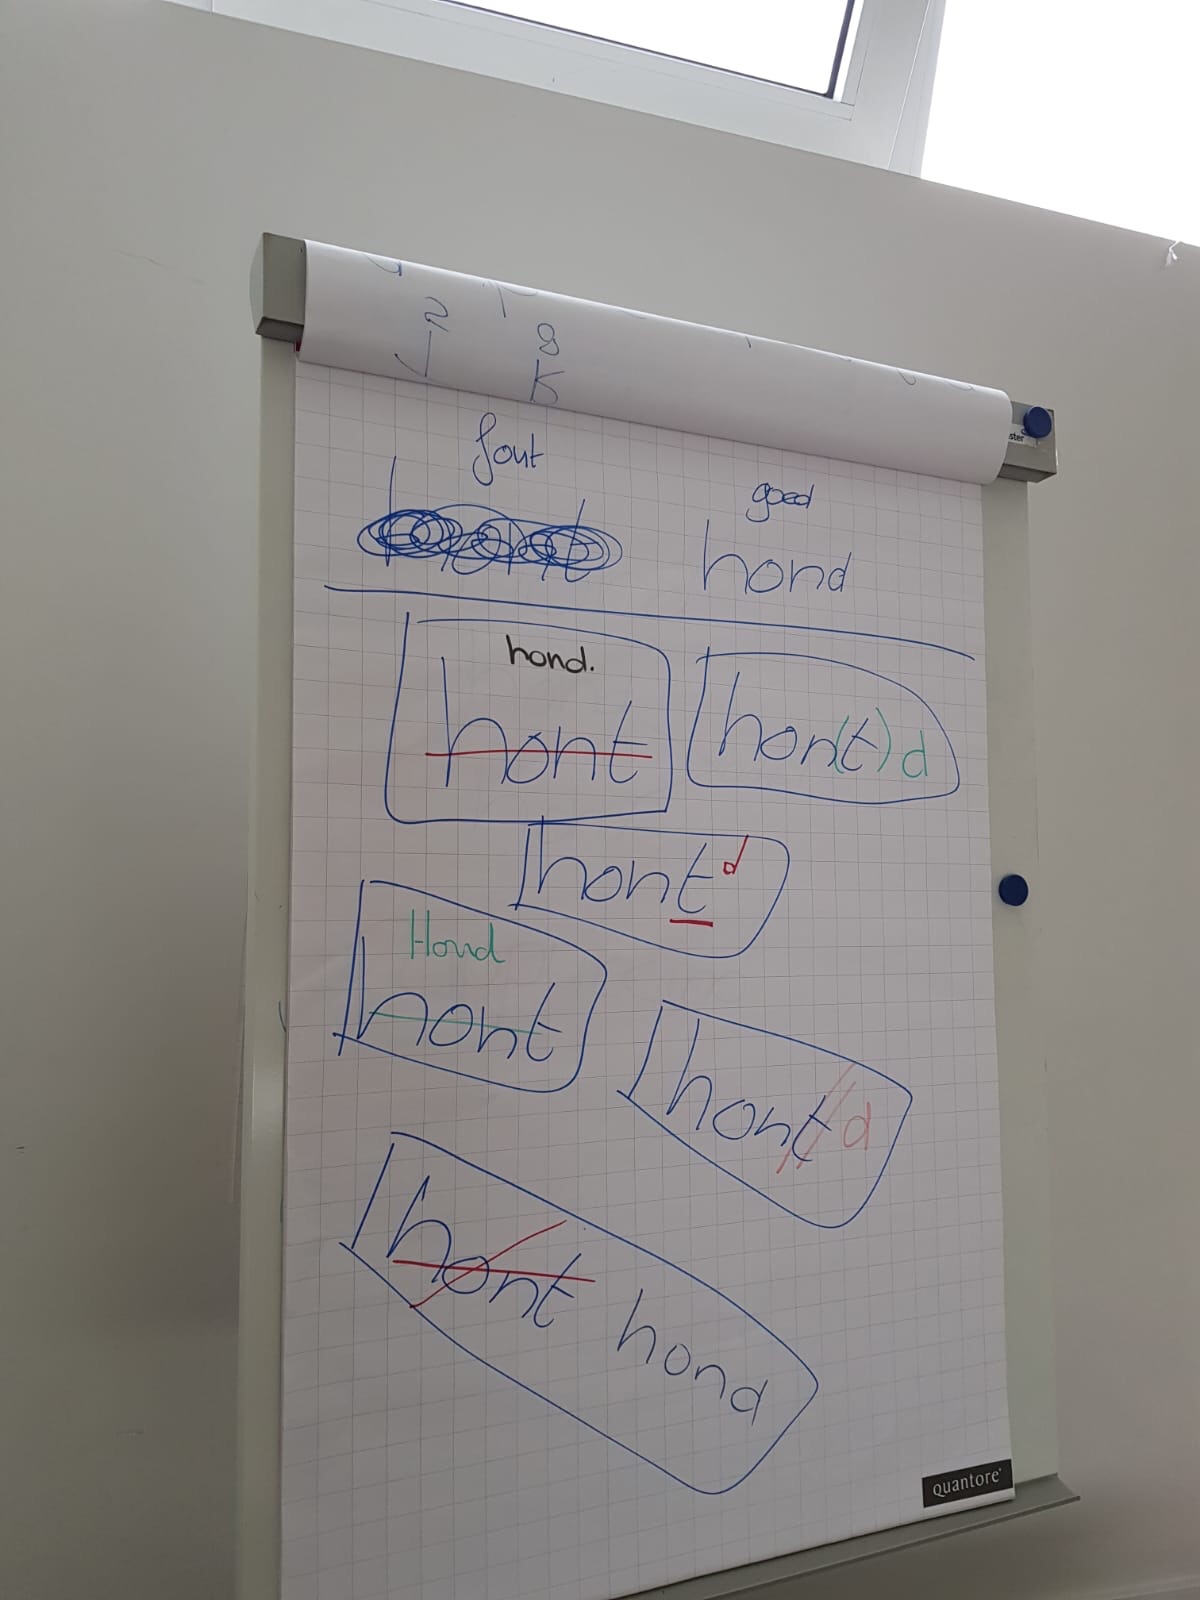 2 8
J K
fout
goed
hont hond
hond.
hont
hon(t) d
hont d
Hond
hont
hont d
hont hond
quantore